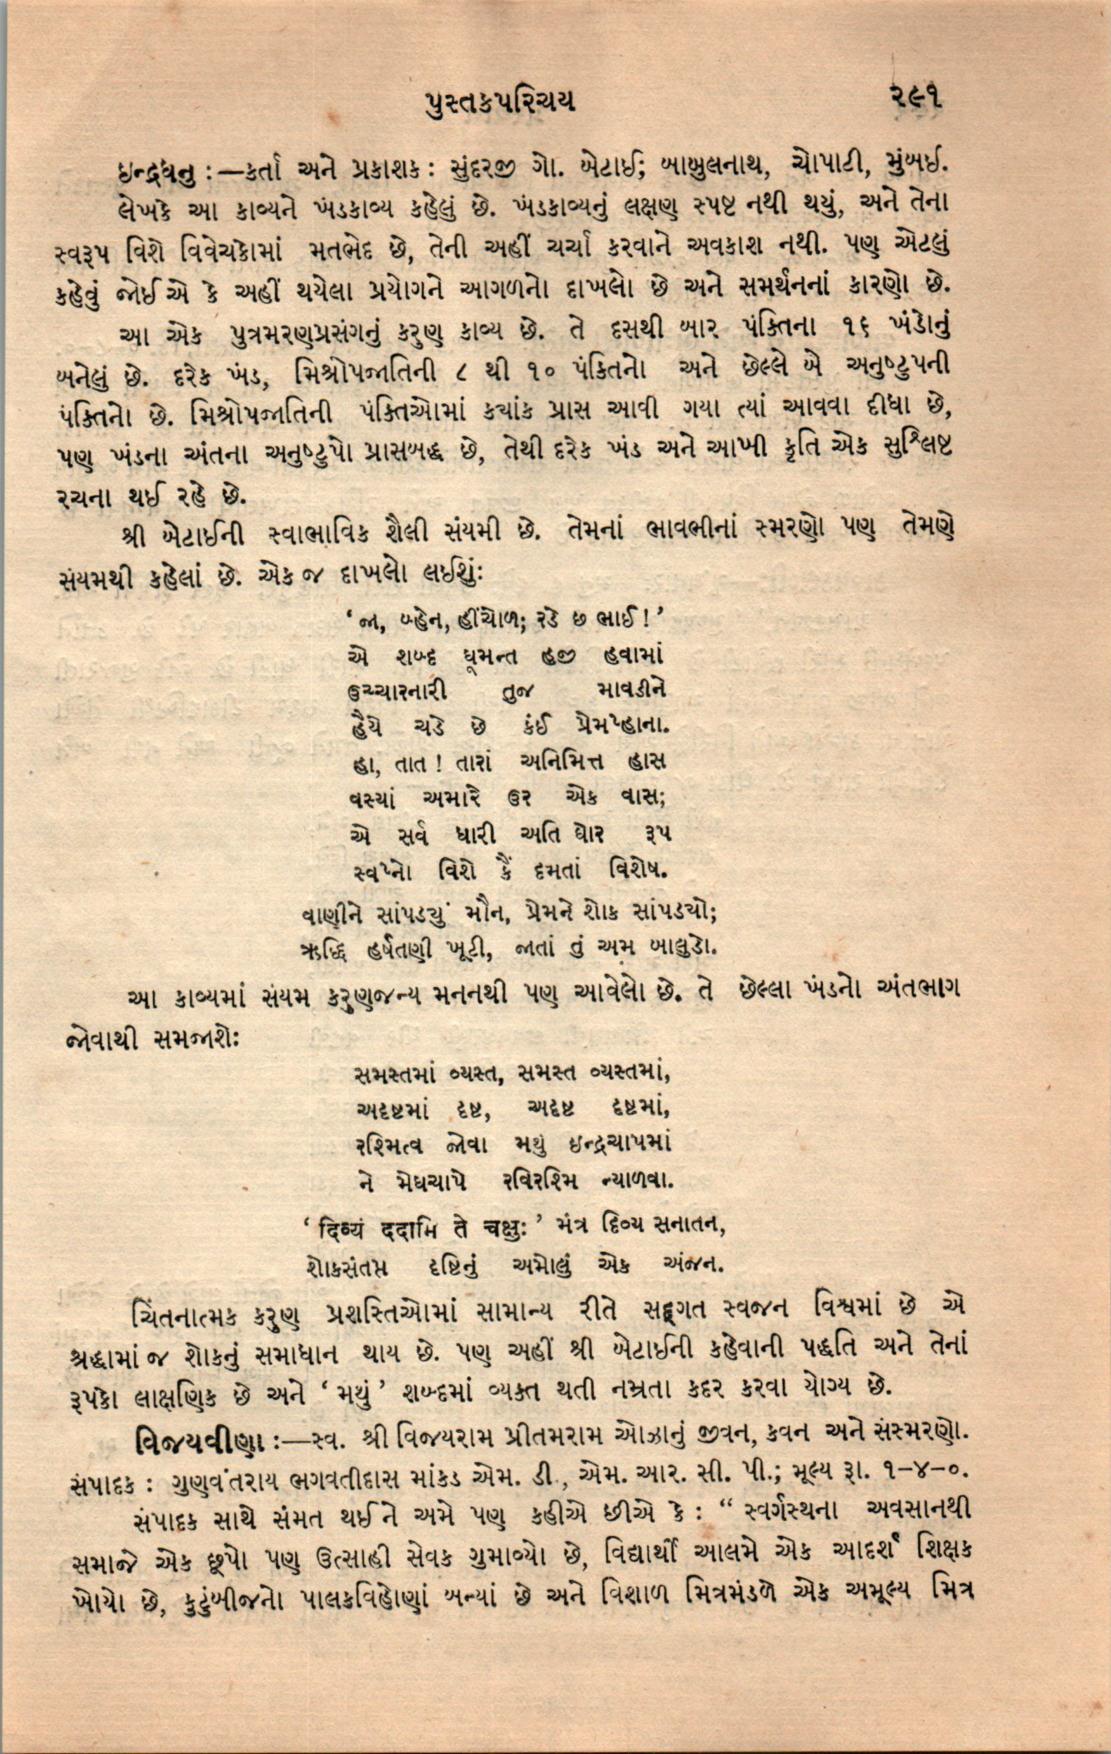 પુસ્તકપરિચય ૨૯૧
ઇન્દ્રધનુ :—કર્તા અને પ્રકાશક : સુંદરજી ગો. બેટાઈ; બાબુલનાથ, ચોપાટી, મુંબઈ.
લેખકે આ કાવ્યને ખંડકાવ્ય કહેલું છે. ખંડકાવ્યનું લક્ષણ સ્પષ્ટ નથી થયું, અને તેના
સ્વરૂપ વિશે વિવેચકોમાં મતભેદ છે, તેની અહીં ચર્ચા કરવાને અવકાશ નથી. પણ એટલું
કહેવું જોઈ એ કે અહીં થયેલા પ્રયોગને આગળનો દાખલો છે અને સમર્થનનાં કારણો છે.
આ એક પુત્રમરણપ્રસંગનું કરુણ કાવ્ય છે. તે દસથી બાર પંક્તિના ૧૬ ખંડોનું
બનેલું છે. દરેક ખંડ, મિશ્રોપજાતિની ૮ થી ૧૦ પંક્તિનો અને છેલ્લે બે અનુષ્ટુપની
પંક્તિનો છે. મિશ્રોપજાતિની પંક્તિઓમાં ક્યાંક પ્રાસ આવી ગયા ત્યાં આવવા દીધા છે,
પણ ખંડના અંતના અનુષ્ટુપો પ્રાસબદ્ધ છે, તેથી દરેક ખંડ અને આખી કૃતિ એક સુશ્લિષ્ટ
રચના થઈ રહે છે.
શ્રી બેટાઈની સ્વાભાવિક શૈલી સંયમી છે. તેમનાં ભાવભીનાં સ્મરણો પણ તેમણે
સંયમથી કહેલાં છે. એક જ દાખલો લઈશું:
‘ જા, બ્હેન, હીંચોળ; રડે છ ભાઈ ! ’
એ શબ્દ ઘૂમન્ત હજી હવામાં
ઉચ્ચારનારી તુજ માવડીને
હૈયે ચડે છે કંઈ પ્રેમપ્હાના.
હા, તાત ! તારાં અનિમિત્ત હાસ
વસ્યાં અમારે ઉર એક વાસ;
એ સર્વ ધારી અતિ ઘોર રૂપ
સ્વપ્નો વિશે કૈં દમતાં વિશેષ.
વાણીને સાંપડ્યું મૌન, પ્રેમને શોક સાંપડ્યો;
ઋદ્ધિ હર્ષતણી ખૂટી, જાતાં તું અમ બાલુડો.
આ કાવ્યમાં સંયમ કરુણજન્ય મનનથી પણ આવેલો છે. તે છેલ્લા ખંડનો અંતભાગ
જોવાથી સમજાશે:
સમસ્તમાં વ્યસ્ત, સમસ્ત વ્યસ્તમાં,
અદૃષ્ટમાં દૃષ્ટ, અદૃષ્ટ દૃષ્ટમાં,
રશ્મિત્વ જોવા મથું ઇન્દ્રચાપમાં
ને મેઘચાપે રવિરશ્મિ ન્યાળવા.
‘ દિવ્યં દદામિ તે ચક્ષુઃ ’ મંત્ર દિવ્ય સનાતન,
શોકસંતપ્ત દૃષ્ટિનું અમોલું એક અંજન.
ચિંતનાત્મક કરુણ પ્રશસ્તિઓમાં સામાન્ય રીતે સદ્ગત સ્વજન વિશ્વમાં છે એ
શ્રદ્ધામાં જ શોકનું સમાધાન થાય છે. પણ અહીં શ્રી બેટાઈની કહેવાની પદ્ધતિ અને તેનાં
રૂપકો લાક્ષણિક છે અને ‘ મથું ’ શબ્દમાં વ્યક્ત થતી નમ્રતા કદર કરવા યોગ્ય છે.
વિજયવીણા :—સ્વ. શ્રી વિજયરામ પ્રીતમરામ ઓઝાનું જીવન, કવન અને સંસ્મરણો.
સંપાદક : ગુણવંતરાય ભગવતીદાસ માંકડ એમ. ડી., એમ. આર. સી. પી.; મૂલ્ય રૂા. ૧-૪-૦.
સંપાદક સાથે સંમત થઈ ને અમે પણ કહીએ છીએ કે : “ સ્વર્ગસ્થના અવસાનથી
સમાજે એક છૂપો પણ ઉત્સાહી સેવક ગુમાવ્યો છે, વિદ્યાર્થી આલમે એક આદર્શ શિક્ષક
ખોયો છે, કુટુંબીજનો પાલકવિહોણાં બન્યાં છે અને વિશાળ મિત્રમંડળે એક અમૂલ્ય મિત્ર